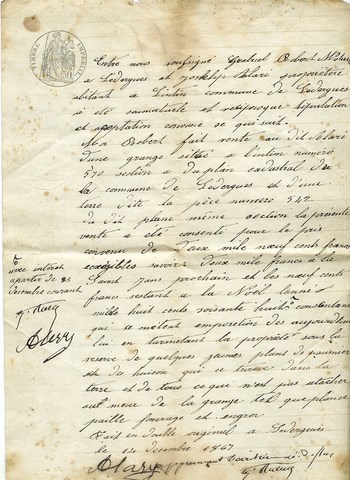 TIMBRE IMPERIAL
50
Entre nous soussigné Gabriel Robert
a Ledergues et propriétaire
abitant a Lintin commune de Ledergues
a été sannutuele et réssiproque stipulation
et acceptation convenu ce qui suit.
Robert fait vente au dit
d'une grange sittée a lintin numéro
570 section a du plan cadastral de
la commune de Ledergues et d'une
terre dite la pièce numéro 542
du dit plane même section la présente
vente a été consentie pour le prix
convenu de deux mile neuf cents francs
exsigibles savoir: deux mile francs à la
Saint Jean prochain et les neuf cents
francs restant a la Noël année
mille huit cents soixante huit
qui se métent emposétion des aujourdhui
lui en turmetant la propriété sous la
réserve de quelques jaunes plans de paumier
et des buison qui ce trouve dans la
terre et de tous ce qui n'est pas atacher
aut meur de la grange tel que plance
paille fourage et engrai
Fait en double original a Ledergues
le 14 décembre 1867
Alary
avec intérêt
a partir de 25
décembre courant
Alary